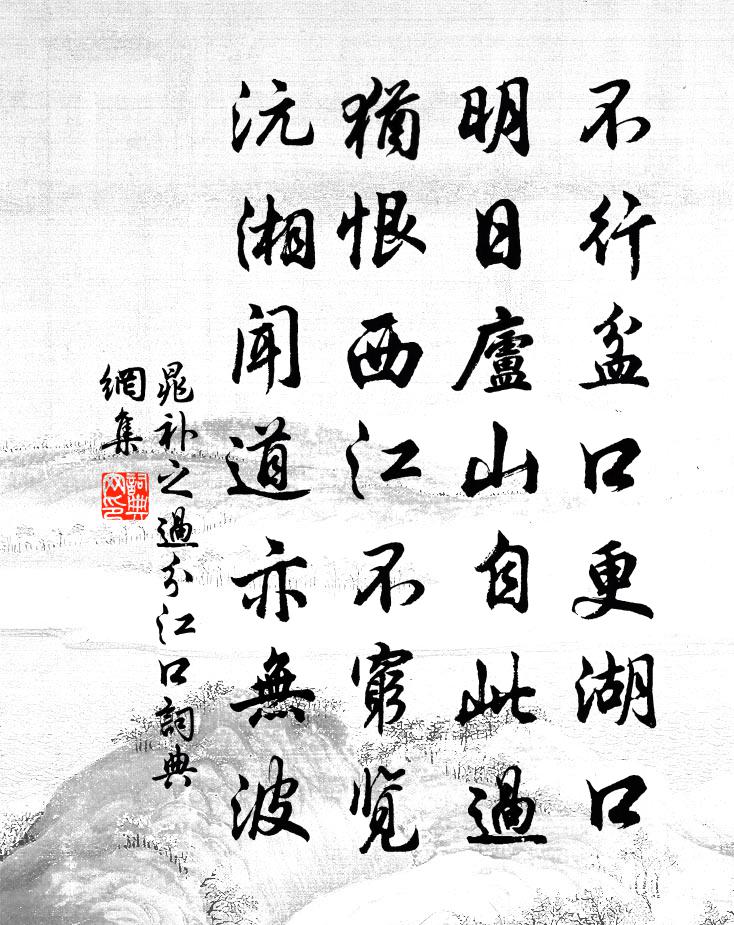 不行盆口更湖口
明日廬山自此過
猶恨西江不窮覽
沅湘聞道亦無波
晁补之過分江口詞典
網集
詞典
网印